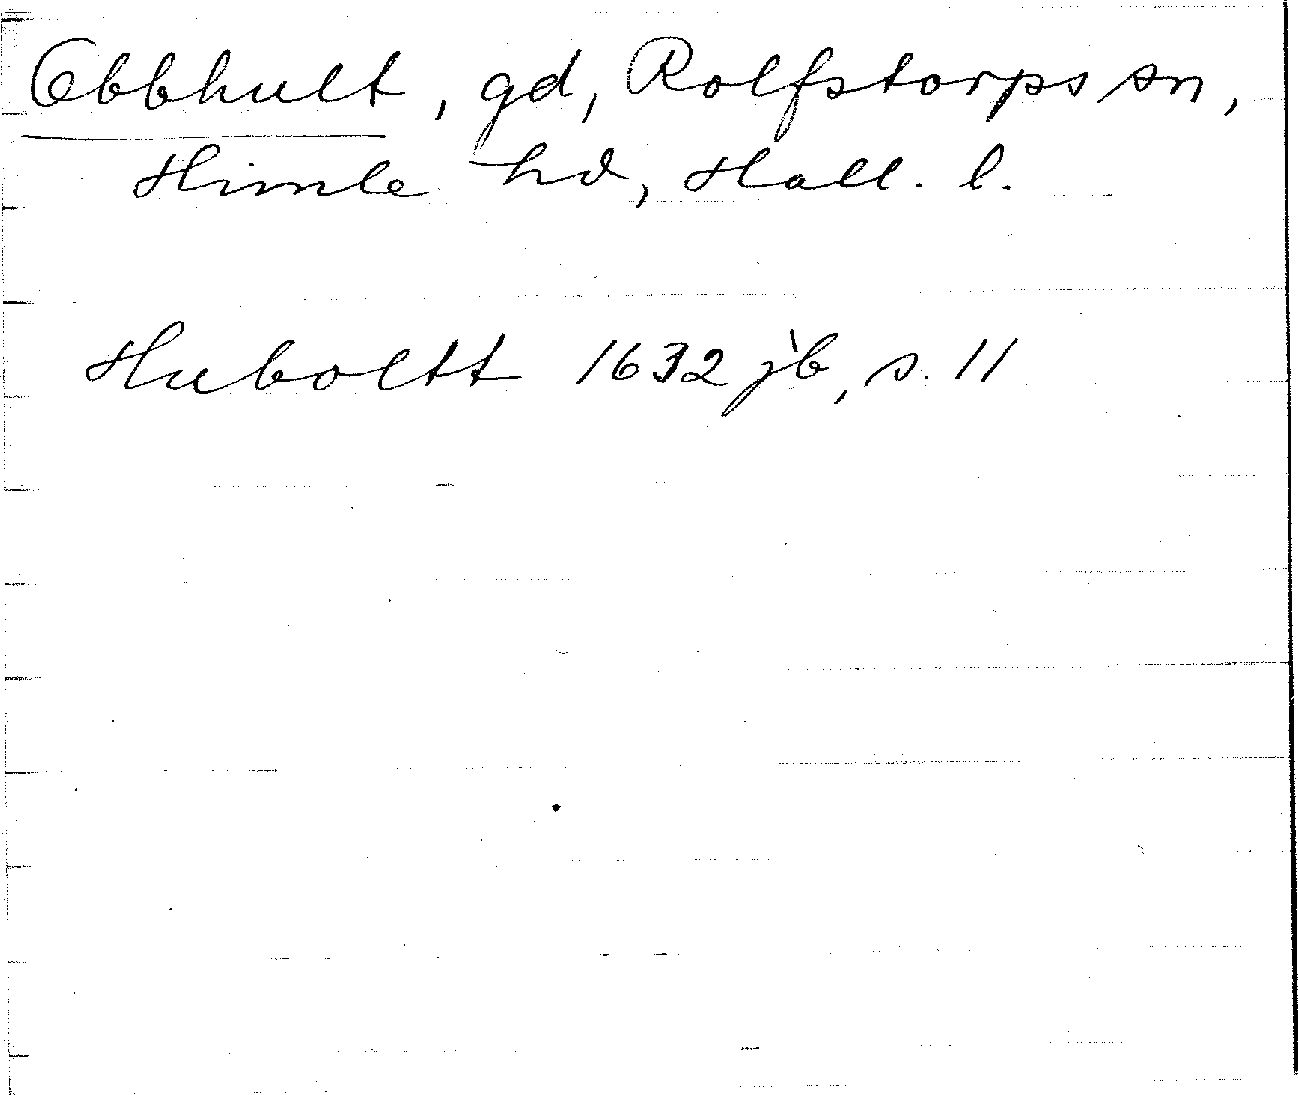 Obbhult, gd, Rolfstorps sn,
Himle hd, Hall. l.
Huboltt 1632 jb, s. 11